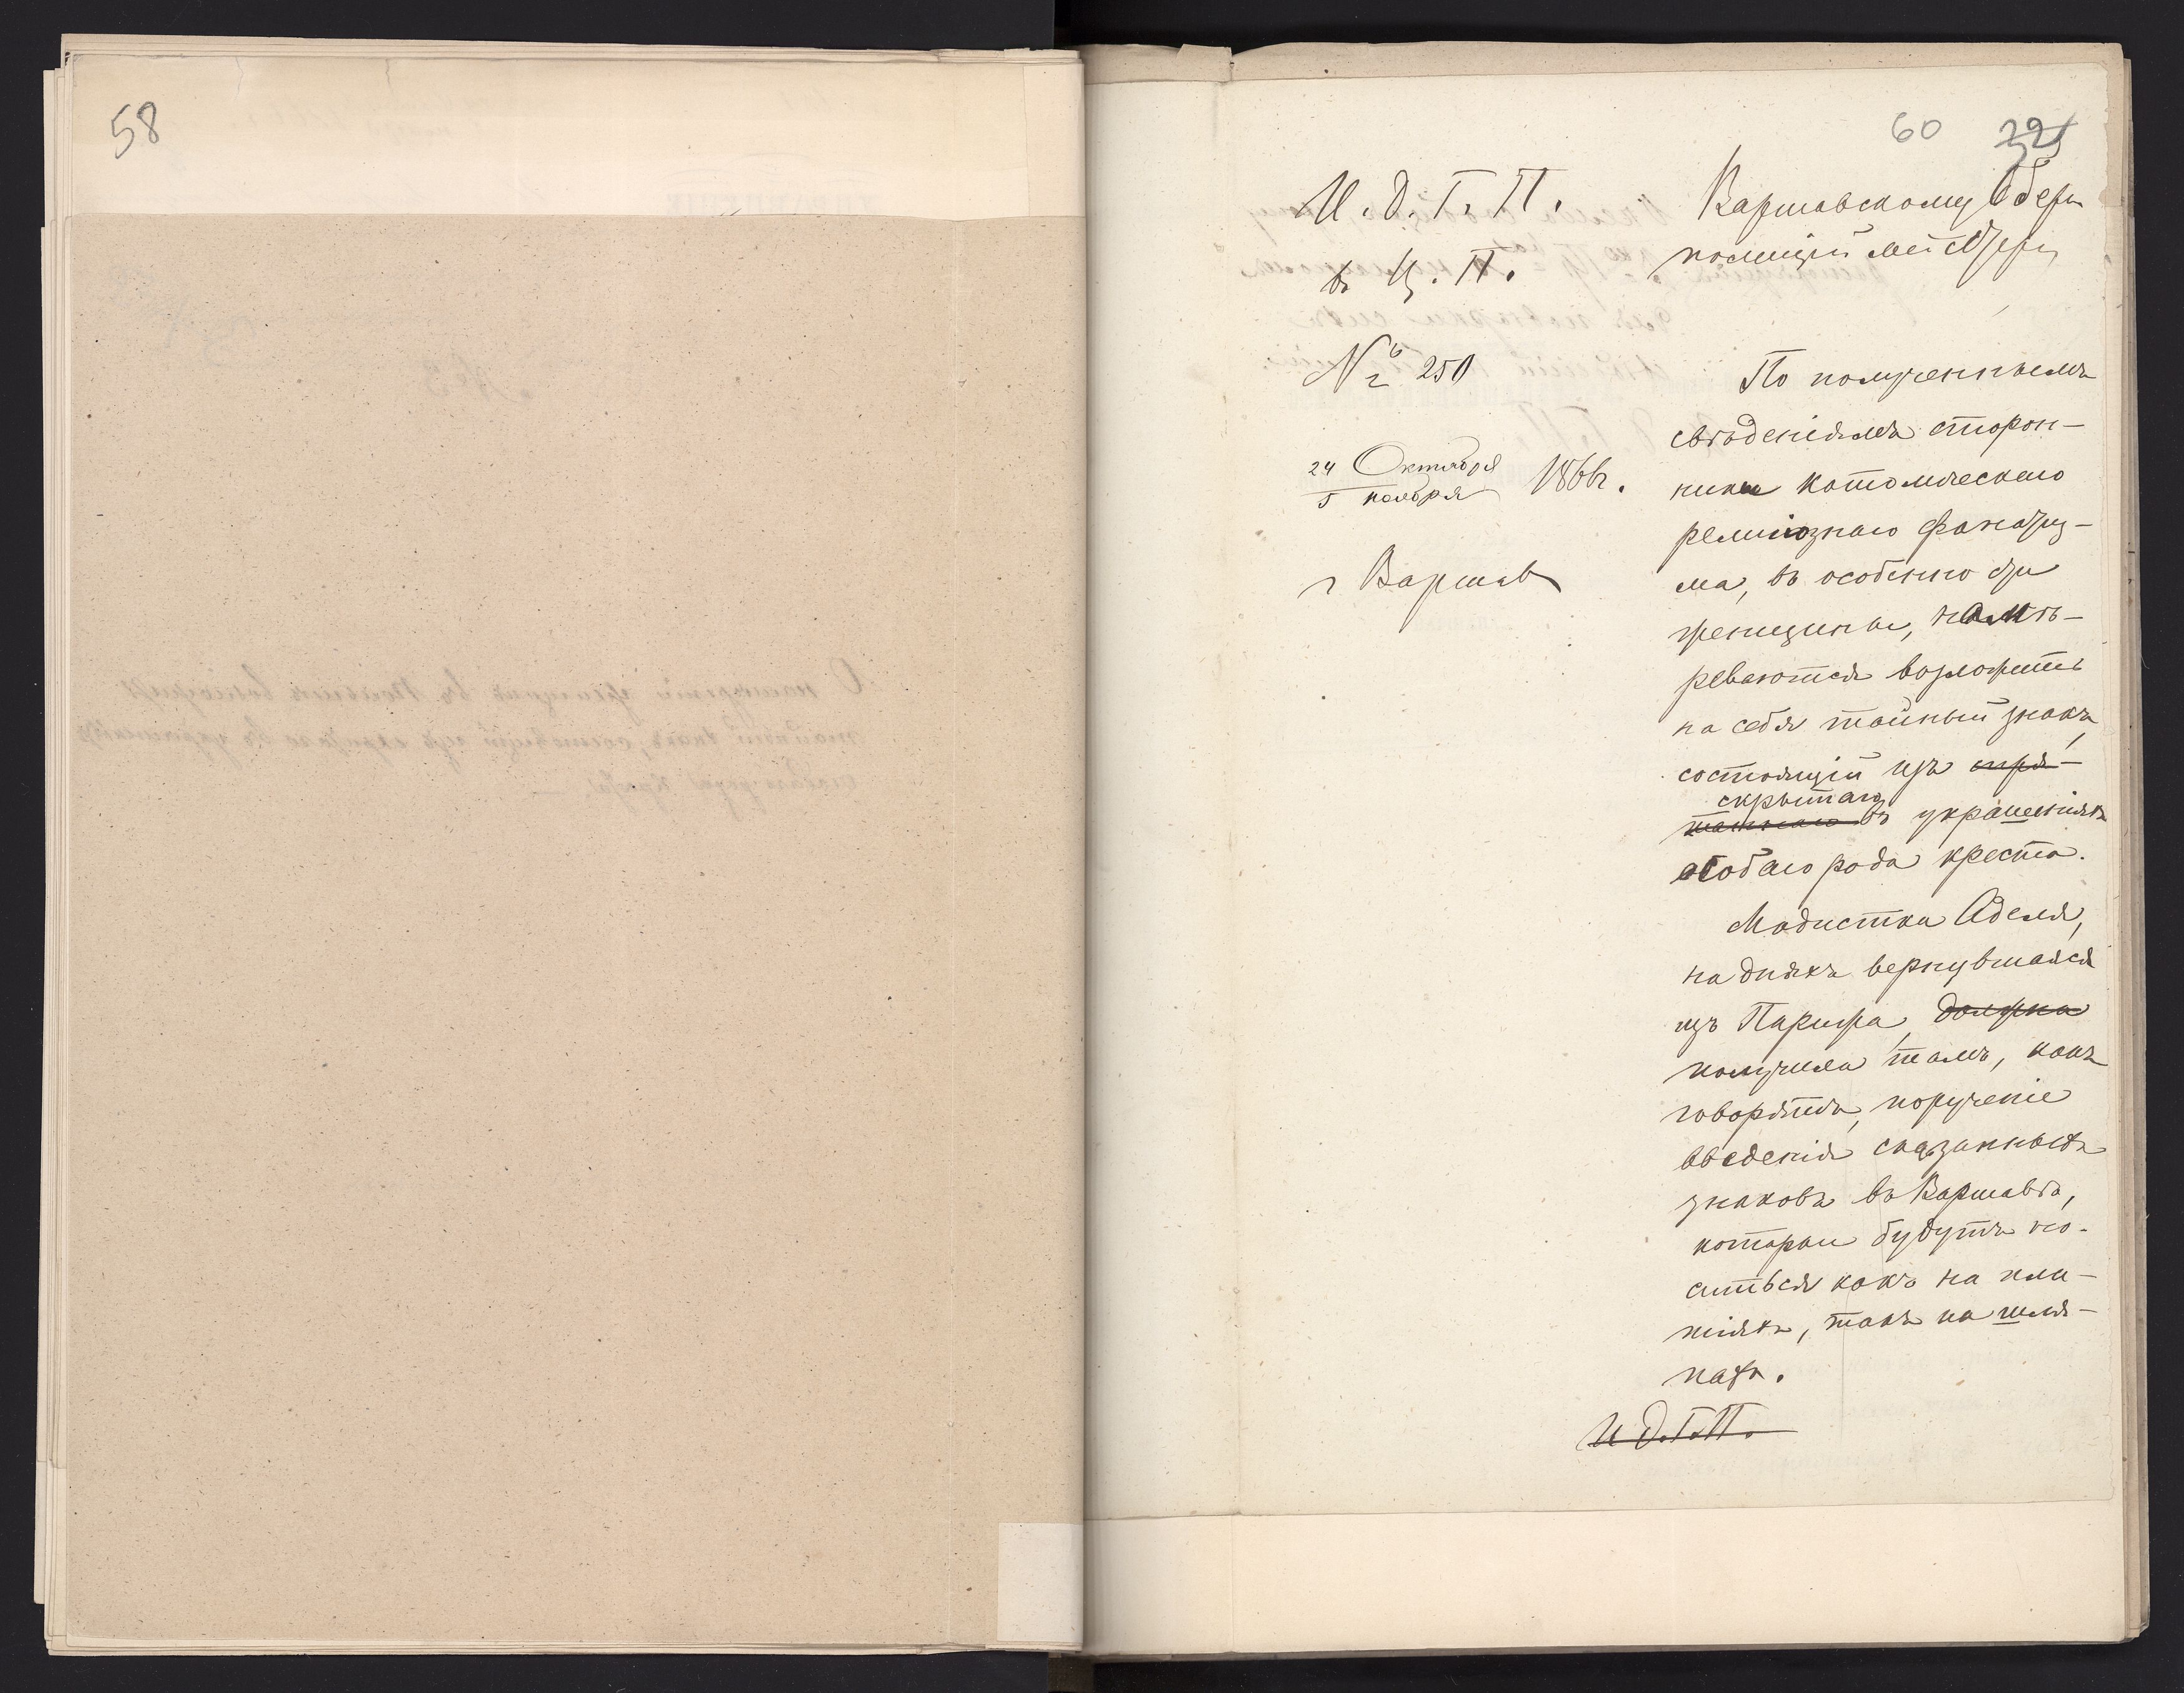 58
60 32
И. Д. Г. П.
в Ц. П.
№ 250
24 Октября
5 ноября 1866 г.
г Варшав
Варшавскому Обер
полицiймейстеру
По полученнымъ
свѣденiямъ сторон-
ники католическаго
религiознаго фанатиз-
ма, въ особенности
женщины, намѣ-
реваются возложить
на себя тайный знакъ,
состоящiй изъ спря-
скрытаго
таннаго въ украшенiяхъ
особаго рода креста.
Модистка Аделя,
на дняхъ вернувшаяся
изъ Парижа, должна
получила тамъ, какъ
говорятъ, порученiе
введенiя сказанныхъ
знаковъ въ Варшавѣ,
которые будутъ но-
ситься какъ на пла-
тiяхъ, такъ на шля-
пахъ.
И Д. Г. П.